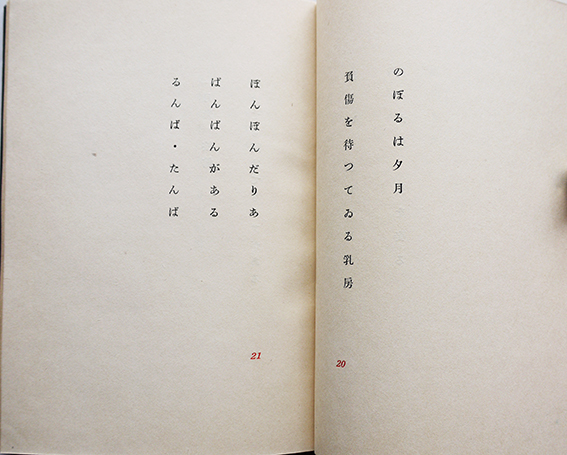 のぼるは夕月
負傷を待つてゐる乳房
20
ぽんぽんだりあ
ぱんぱんがある
るんば・たんば
21